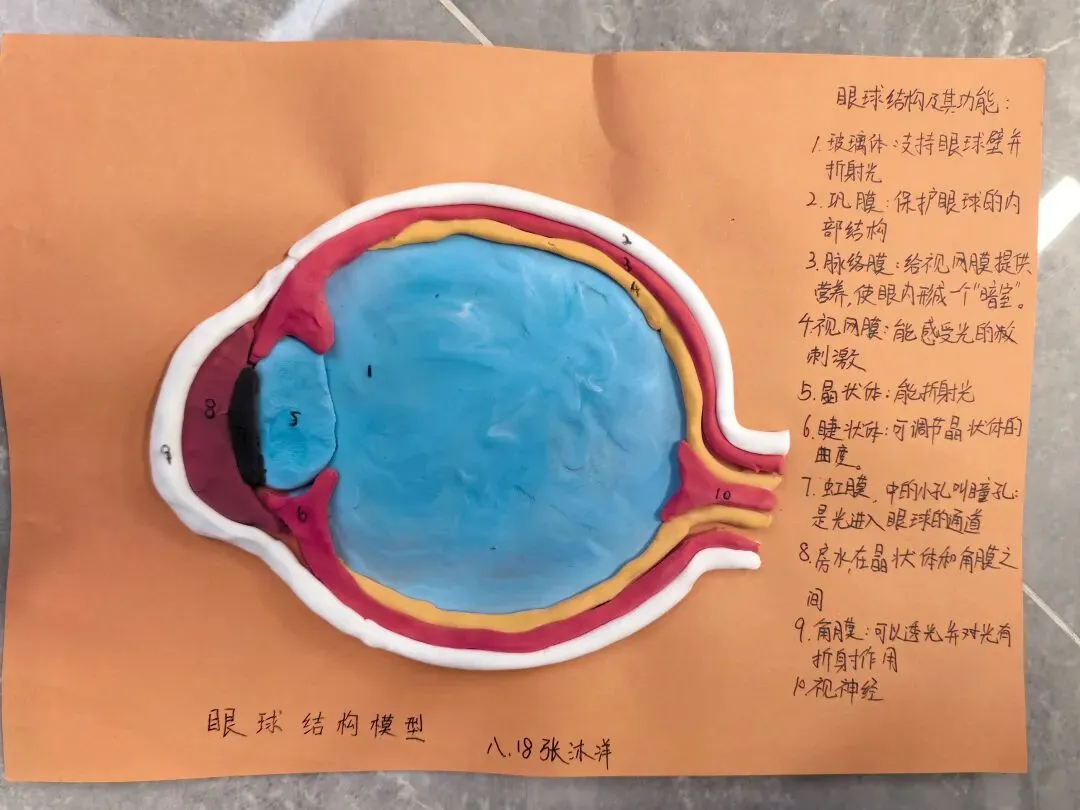 眼球结构及其功能：
1.玻璃体：支持眼球壁并
折射光
2.巩膜：保护眼球的内
部结构
3.脉络膜：给视网膜提供
营养，使眼内形成一个“暗室”。
4.视网膜：能感受光的
刺激
5.晶状体：能折射光
6.睫状体：可调节晶状体的
曲度。
7.虹膜，中的小孔叫瞳孔：
是光进入眼球的通道
8.房水，在晶状体和角膜之
间
9.角膜：可以透光并对光有
折射作用
10.视神经
2
3
4
1
8
5
9
6
10
眼球结构模型
八.18张沐洋